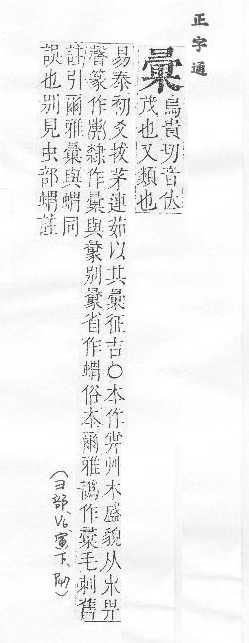 正字通
彙
烏貴切音位
茂也又類也
易泰初爻拔茅連茹以其彙征吉○本作艸木盛貌从𣎵畀
聲篆作隸作彙與彚別彚省作蝟俗本爾雅譌作彙毛刺舊
註引爾雅彙與蝟同
誤也別見虫部蝟註
(彐部 V6 寅下)